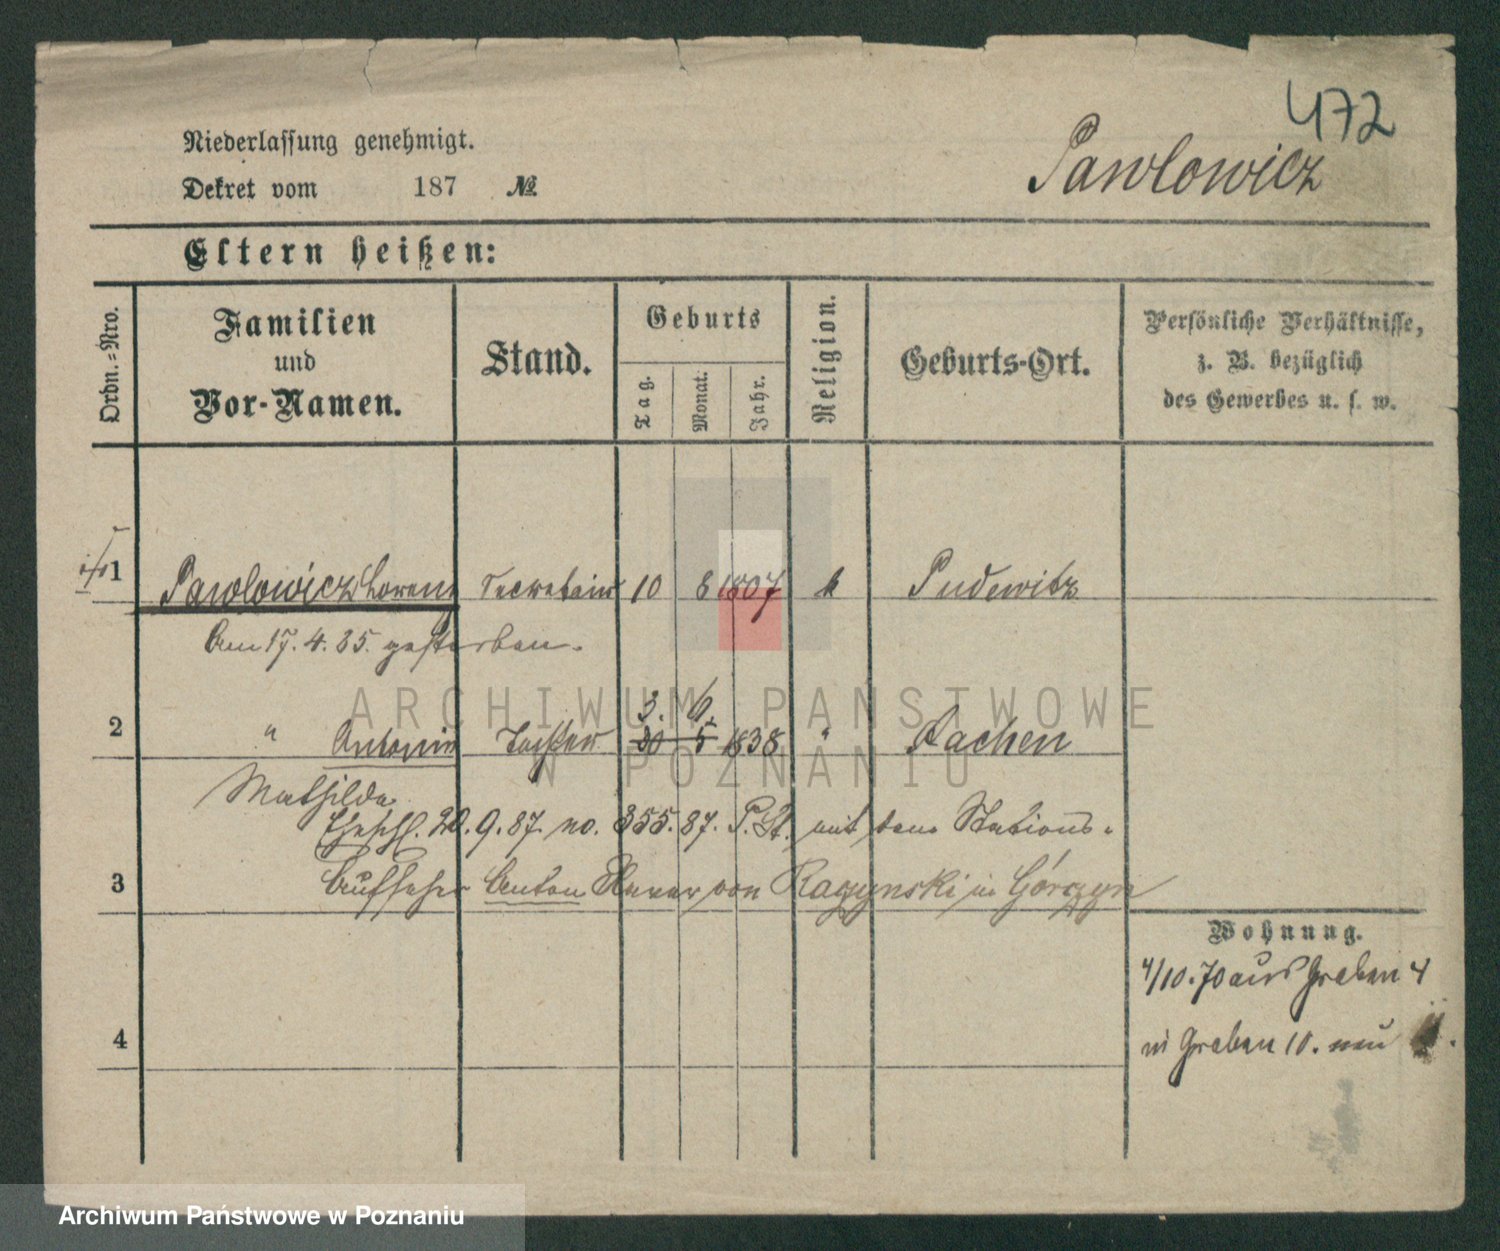 472
Niederlassung genehmigt.
Pawlowicz
Dekret vom 187 №
Eltern heißen:
Ordn.=Nro.
Familien und Vor-Namen.
Stand.
Geburts
Tag.
Monat.
Jahr.
Religion.
Geburts-Ort.
Persönliche Verhältnisse,
z. B. bezüglich
des Gewerbes u. s. w.
1 Pawlowicz Lorenz Secretair 10 8 1807 k Pudewitz
Am 17. 4. 85. gestorben.
3. 6.
2 " Antonie Tochter 20 5 1838 " Aachen
Mathilde
Eheschl. 20. 9. 87. no. 355. 87. P. St. mit dem Stations-
3 Aufseher Anton Xaver von Raczynski in Górczyn
Wohnung.
4/10. 70 aus Graben 4
4 in Graben 10. neu
ARCHIWUM PAŃSTWOWE
W POZNANIU
Archiwum Państwowe w Poznaniu